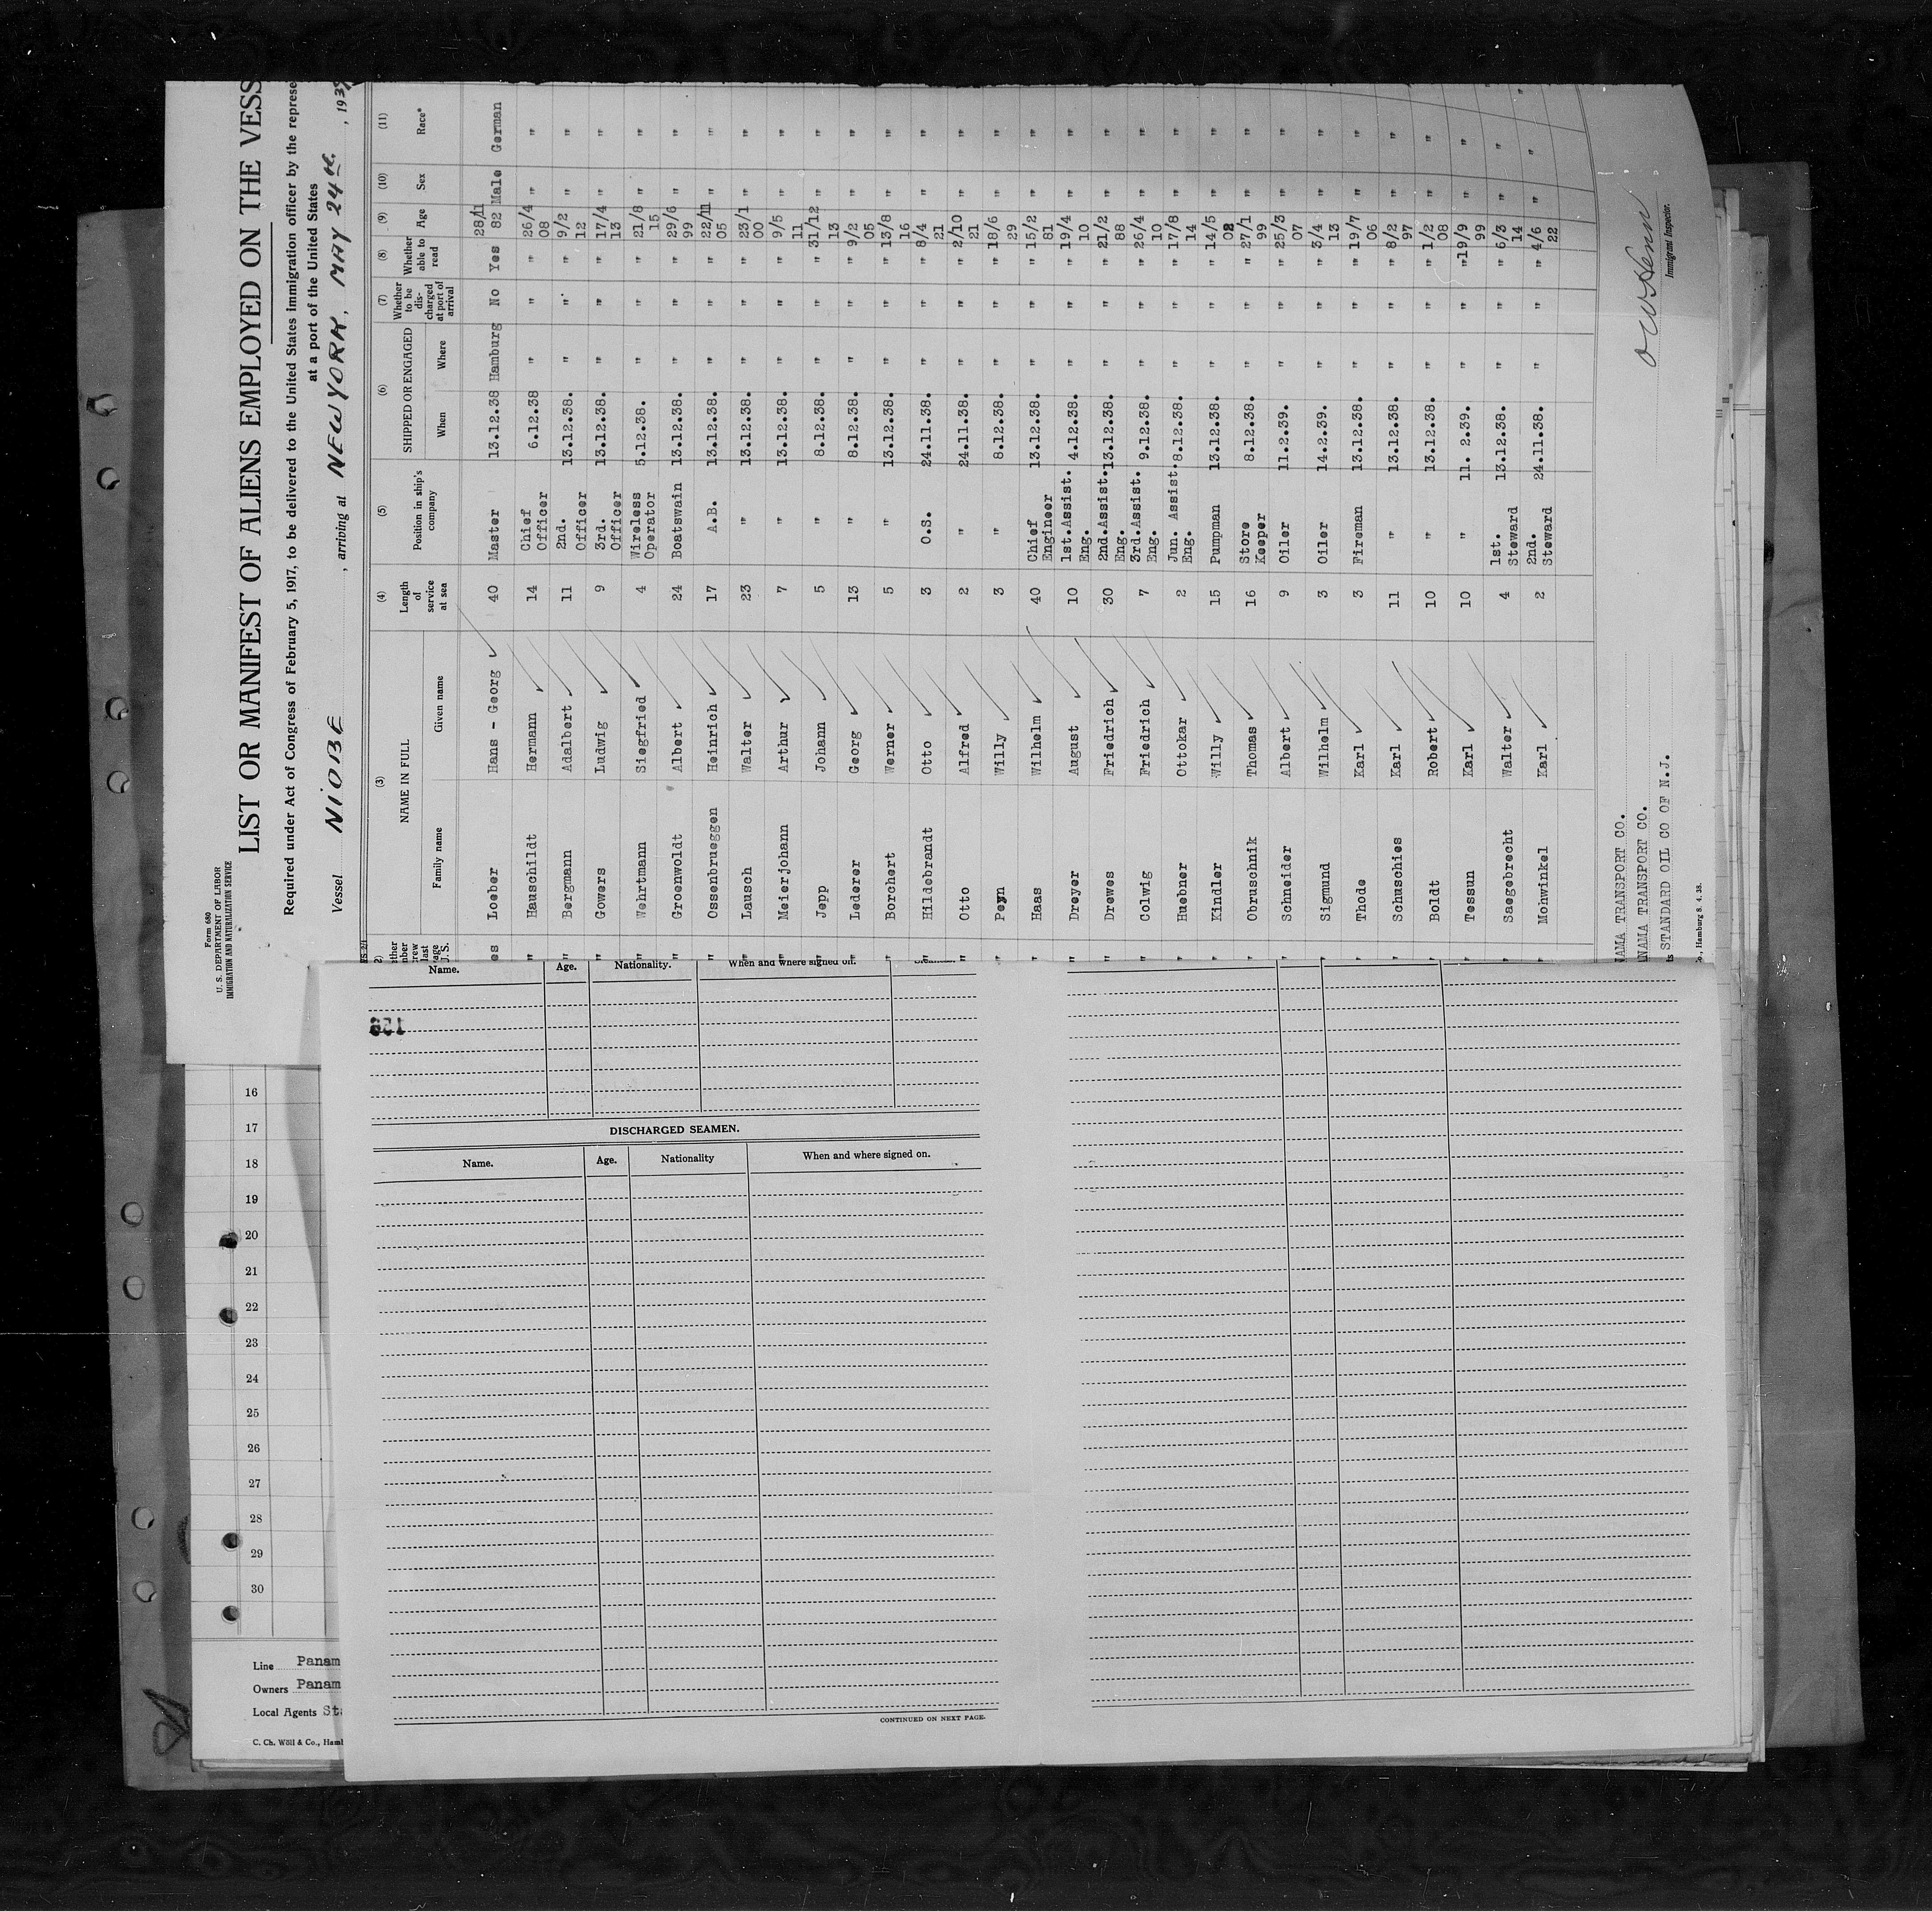 Form 680
U. S. DEPARTMENT OF LABOR
IMMIGRATION AND NATURALIZATION SERVICE
LIST OR MANIFEST OF ALIENS EMPLOYED ON THE VESS
Required under Act of Congress of February 5, 1917, to be delivered to the United States immigration officer by the represe
at a port of the United States
Vessel NIOBE , arriving at NEW YORK, MAY 24th , 1939
(3) (4) (5) (6) (7) (8) (9) (10) (11)
NAME IN FULL Length of service at sea Position in ship's company SHIPPED OR ENGAGED Whether to be discharged at port of arrival Whether able to read Age Sex Race*
Family name Given name When Where
es Loeber Hans - Georg 40 Master 13.12.38 Hamburg No Yes 28/11 82 Male German
" Hauschildt Hermann 14 Chief Officer 6.12.38 " " " 26/4 08 " "
" Bergmann Adalbert 11 2nd. Officer 13.12.38. " " " 9/2 12 " "
" Gowers Ludwig 9 3rd. Officer 13.12.38. " " " 17/4 13 " "
" Wehrtmann Siegfried 4 Wireless Operator 5.12.38. " " " 21/8 15 " "
" Groenwoldt Albert 24 Boatswain 13.12.38. " " " 29/6 99 " "
" Ossenbrueggen Heinrich 17 A.B. 13.12.38. " " " 22/11 05 " "
" Lausch Walter 23 " 13.12.38. " " " 23/1 00 " "
" Meierjohann Arthur 7 " 13.12.38. " " " 9/5 11 " "
" Jepp Johann 5 " 8.12.38. " " " 31/12 13 " "
" Lederer Georg 13 " 8.12.38. " " " 9/2 05 " "
" Borchert Werner 5 " 13.12.38. " " " 13/8 16 " "
" Hildebrandt Otto 3 O.S. 24.11.38. " " " 8/4 21 " "
" Otto Alfred 2 " 24.11.38. " " " 2/10 21 " "
" Peyn Willy 3 " 8.12.38. " " " 18/6 29 " "
" Haas Wilhelm 40 Chief Engineer 13.12.38. " " " 15/2 81 " "
" Dreyer August 10 1st.Assist. Eng. 4.12.38. " " " 19/4 10 " "
" Drewes Friedrich 30 2nd.Assist. Eng. 13.12.38. " " " 21/2 88 " "
" Colwig Friedrich 7 3rd.Assist. Eng. 9.12.38. " " " 26/4 10 " "
" Huebner Ottokar 2 Jun. Assist. Eng. 8.12.38. " " " 17/8 14 " "
" Kindler Willy 15 Pumpman 13.12.38. " " " 14/5 02 " "
" Obruschnik Thomas 16 Store Keeper 8.12.38. " " " 27/1 99 " "
" Schneider Albert 9 Oiler 11.2.39. " " " 25/3 07 " "
" Sigmund Wilhelm 3 Oiler 14.2.39. " " " 3/4 13 " "
" Thode Karl 3 Fireman 13.12.38. " " " 19/7 06 " "
" Schuschies Karl 11 " 13.12.38. " " " 8/2 97 " "
" Boldt Robert 10 " 13.12.38. " " " 1/2 08 " "
" Tessun Karl 10 " 11. 2.39. " " " 19/9 99 " "
" Saegebrecht Walter 4 1st. Steward 13.12.38. " " " 6/3 14 " "
" Mohwinkel Karl 2 2nd. Steward 24.11.38. " " " 4/6 22 " "
NAMA TRANSPORT CO.
NAMA TRANSPORT CO.
ts STANDARD OIL CO OF N.J.
Immigrant Inspector.
o., Hamburg 8. 4. 38.
Name. Age. Nationality. When and where signed on.
DISCHARGED SEAMEN.
Name. Age. Nationality When and where signed on.
CONTINUED ON NEXT PAGE.
16
17
18
19
20
21
22
23
24
25
26
27
28
29
30
Line Panam
Owners Panam
Local Agents Sta
C. Ch. Wöll & Co., Hamb